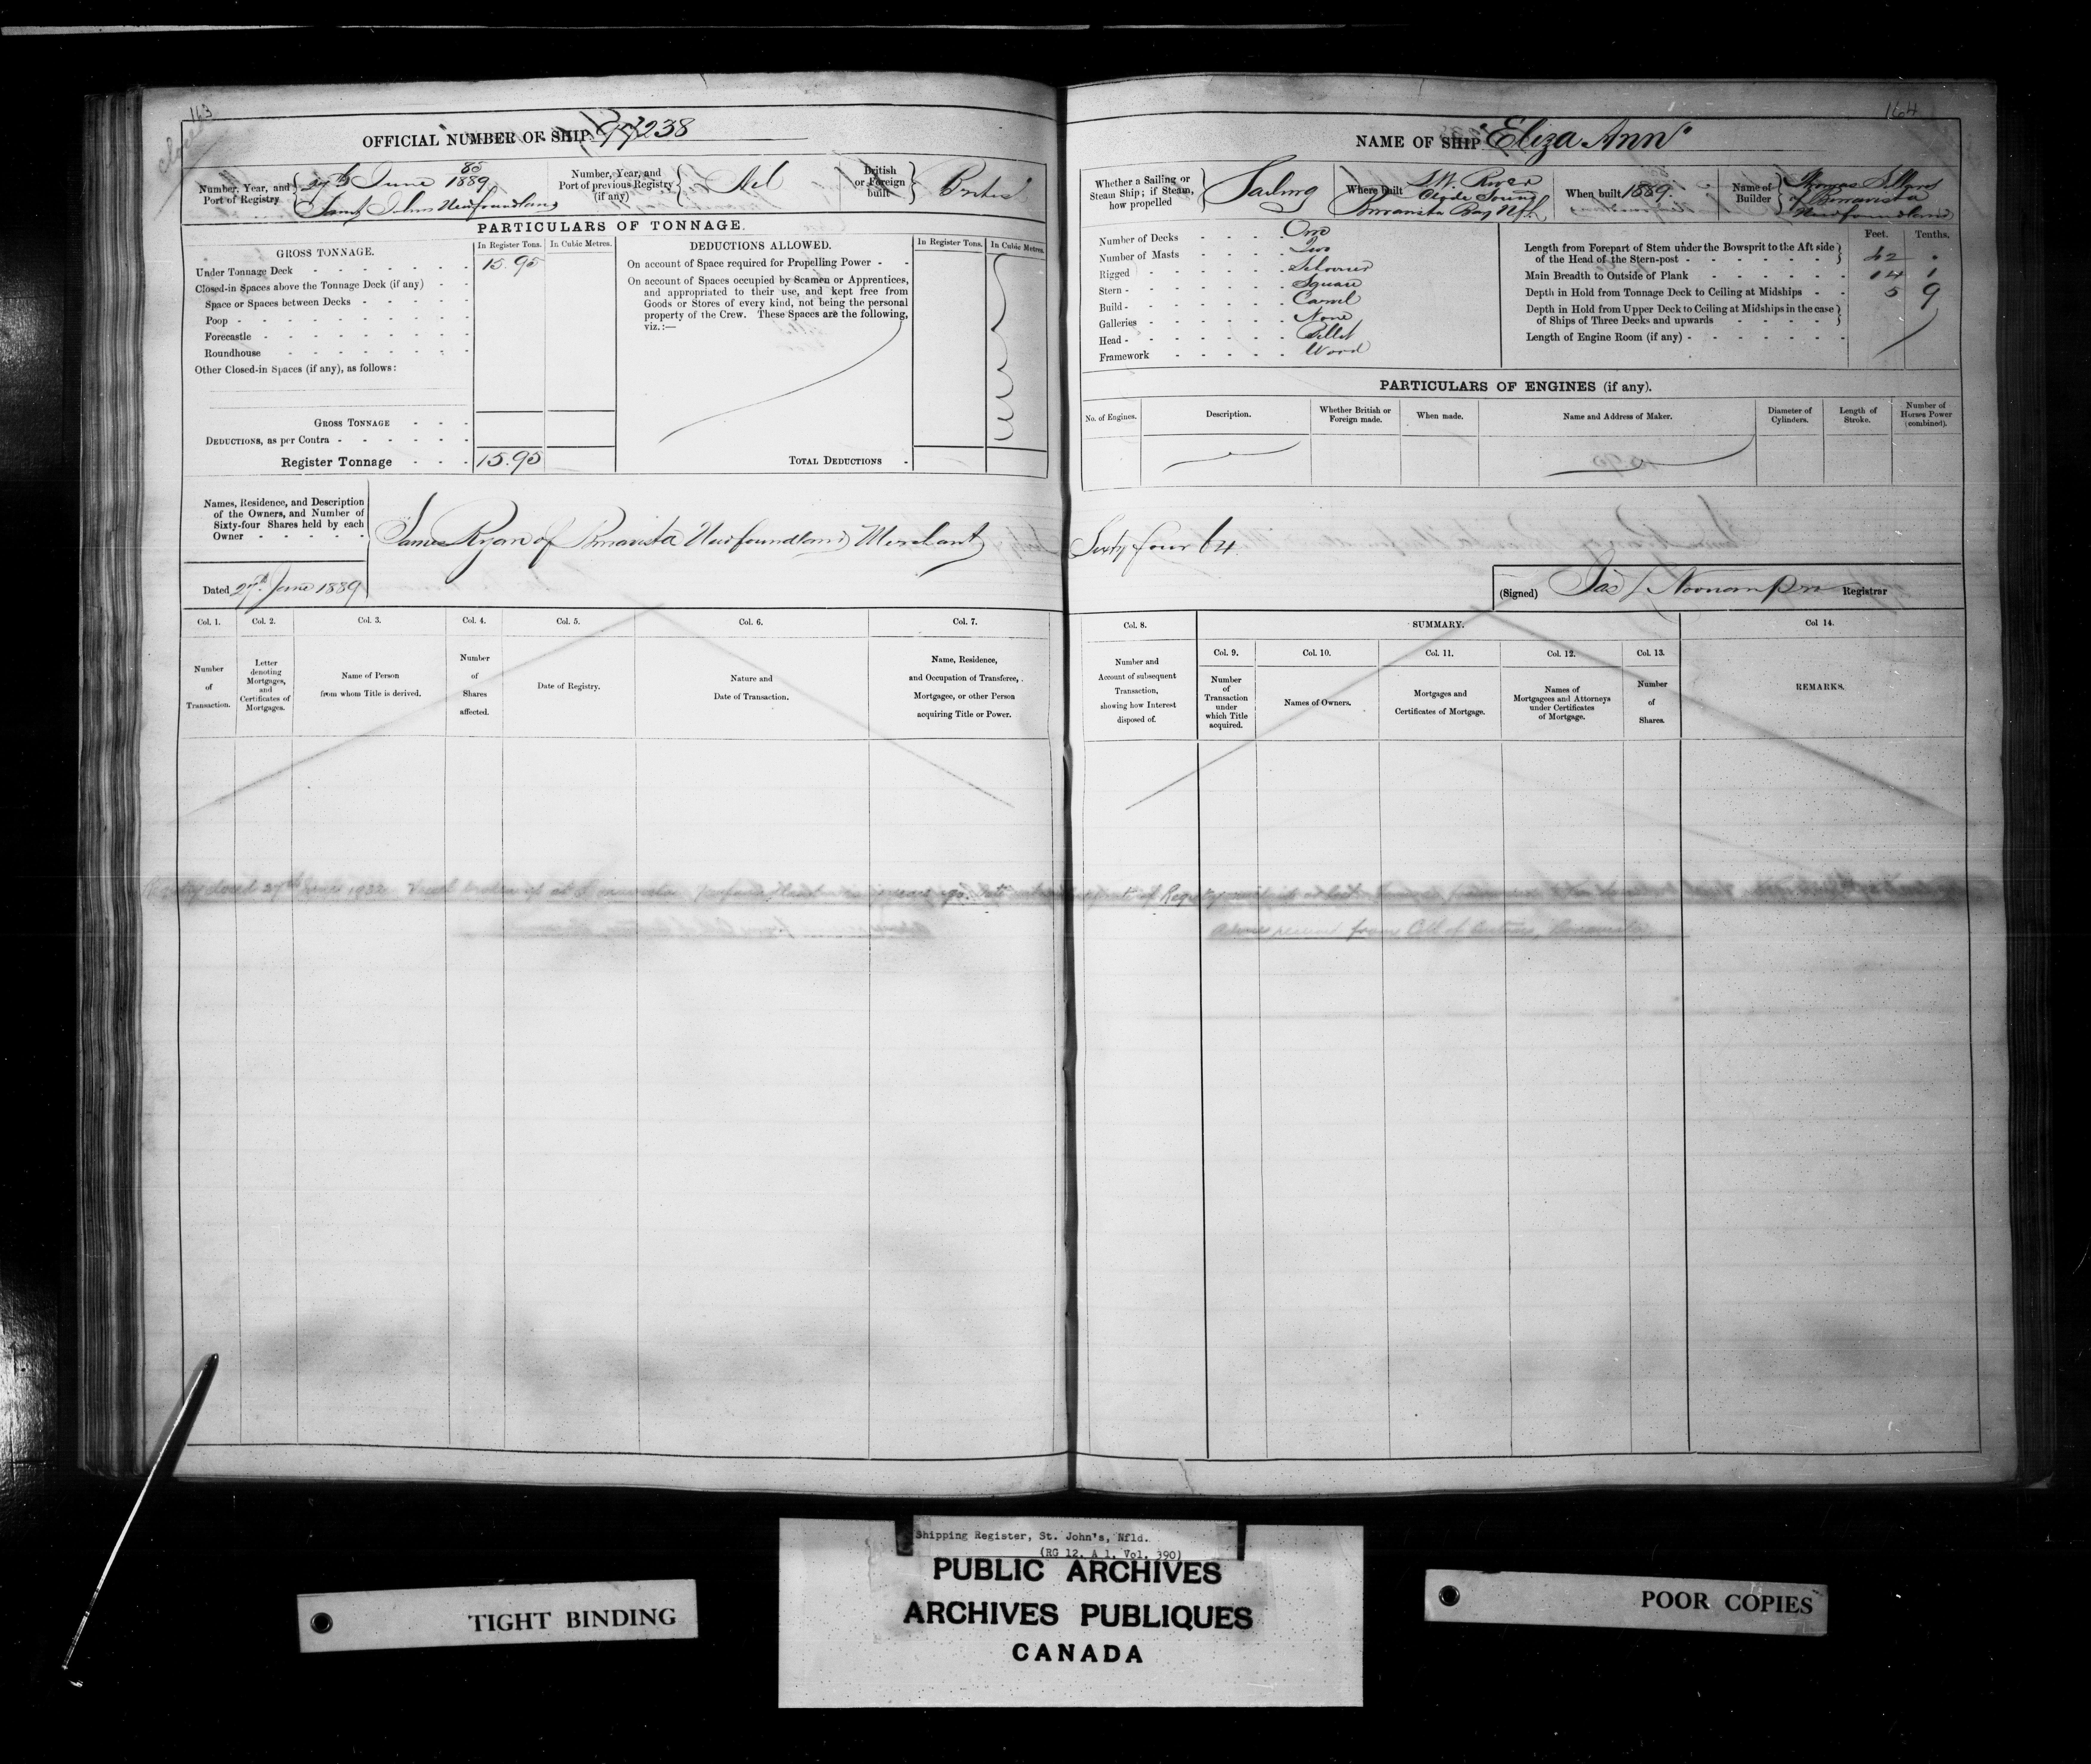 163
closed
OFFICIAL NUMBER OF SHIP 97238
Number, Year, and Port of Registry
27th June 85/1889
Saint Johns Newfoundland
Number, Year, and Port of previous Registry (if any)
Nil
British or Foreign built
British
PARTICULARS OF TONNAGE.
GROSS TONNAGE. In Register Tons. In Cubic Metres.
Under Tonnage Deck 15.95
Closed-in Spaces above the Tonnage Deck (if any)
Space or Spaces between Decks
Poop
Forecastle
Roundhouse
Other Closed-in Spaces (if any), as follows:
GROSS TONNAGE
DEDUCTIONS, as per Contra
Register Tonnage 15.95
DEDUCTIONS ALLOWED. In Register Tons. In Cubic Metres.
On account of Space required for Propelling Power
On account of Spaces occupied by Seamen or Apprentices,
and appropriated to their use, and kept free from
Goods or Stores of every kind, not being the personal
property of the Crew. These Spaces are the following,
viz.:—
TOTAL DEDUCTIONS
Names, Residence, and Description
of the Owners, and Number of
Sixty-four Shares held by each
Owner
James Ryan of Bonavista Newfoundland Merchant
Dated 27th June 1889
Col. 1. Col. 2. Col. 3. Col. 4. Col. 5. Col. 6. Col. 7.
Number of Transaction.
Letter denoting Mortgages, and Certificates of Mortgages.
Name of Person from whom Title is derived.
Number of Shares affected.
Date of Registry.
Nature and Date of Transaction.
Name, Residence, and Occupation of Transferee, Mortgagee, or other Person acquiring Title or Power.
164
NAME OF SHIP "Eliza Ann"
Whether a Sailing or Steam Ship; if Steam, how propelled
Sailing
Where built
S.W. River
Clyde Sound
Bonavista Bay Nfld
When built 1889
Name of Builder
Thomas
of Bonavista
Newfoundland
Number of Decks One
Number of Masts Two
Rigged Schooner
Stern Square
Build Carvel
Galleries None
Head Billet
Framework Wood
Feet. Tenths.
Length from Forepart of Stem under the Bowsprit to the Aft side
of the Head of the Stern-post 42 .
Main Breadth to Outside of Plank 14 1
Depth in Hold from Tonnage Deck to Ceiling at Midships 5 9
Depth in Hold from Upper Deck to Ceiling at Midships in the case
of Ships of Three Decks and upwards
Length of Engine Room (if any)
PARTICULARS OF ENGINES (if any).
No. of Engines. Description. Whether British or Foreign made. When made. Name and Address of Maker. Diameter of Cylinders. Length of Stroke. Number of Horses Power (combined).
Sixty four 64
(Signed) Jas L Noonan Registrar
Col. 8. SUMMARY. Col 14.
Col. 9. Col. 10. Col. 11. Col. 12. Col. 13.
Number and Account of subsequent Transaction, showing how Interest disposed of.
Number of Transaction under which Title acquired.
Names of Owners.
Mortgages and Certificates of Mortgage.
Names of Mortgagees and Attorneys under Certificates of Mortgage.
Number of Shares.
REMARKS.
Registry closed 27th June 1932 Vessel broken up at Bonavista Newfoundland years ago.
Advice received from Coll of Customs, Bonavista
Shipping Register, St. John's, Nfld.
(RG 12, A 1, Vol. 390)
PUBLIC ARCHIVES
ARCHIVES PUBLIQUES
CANADA
TIGHT BINDING
POOR COPIES